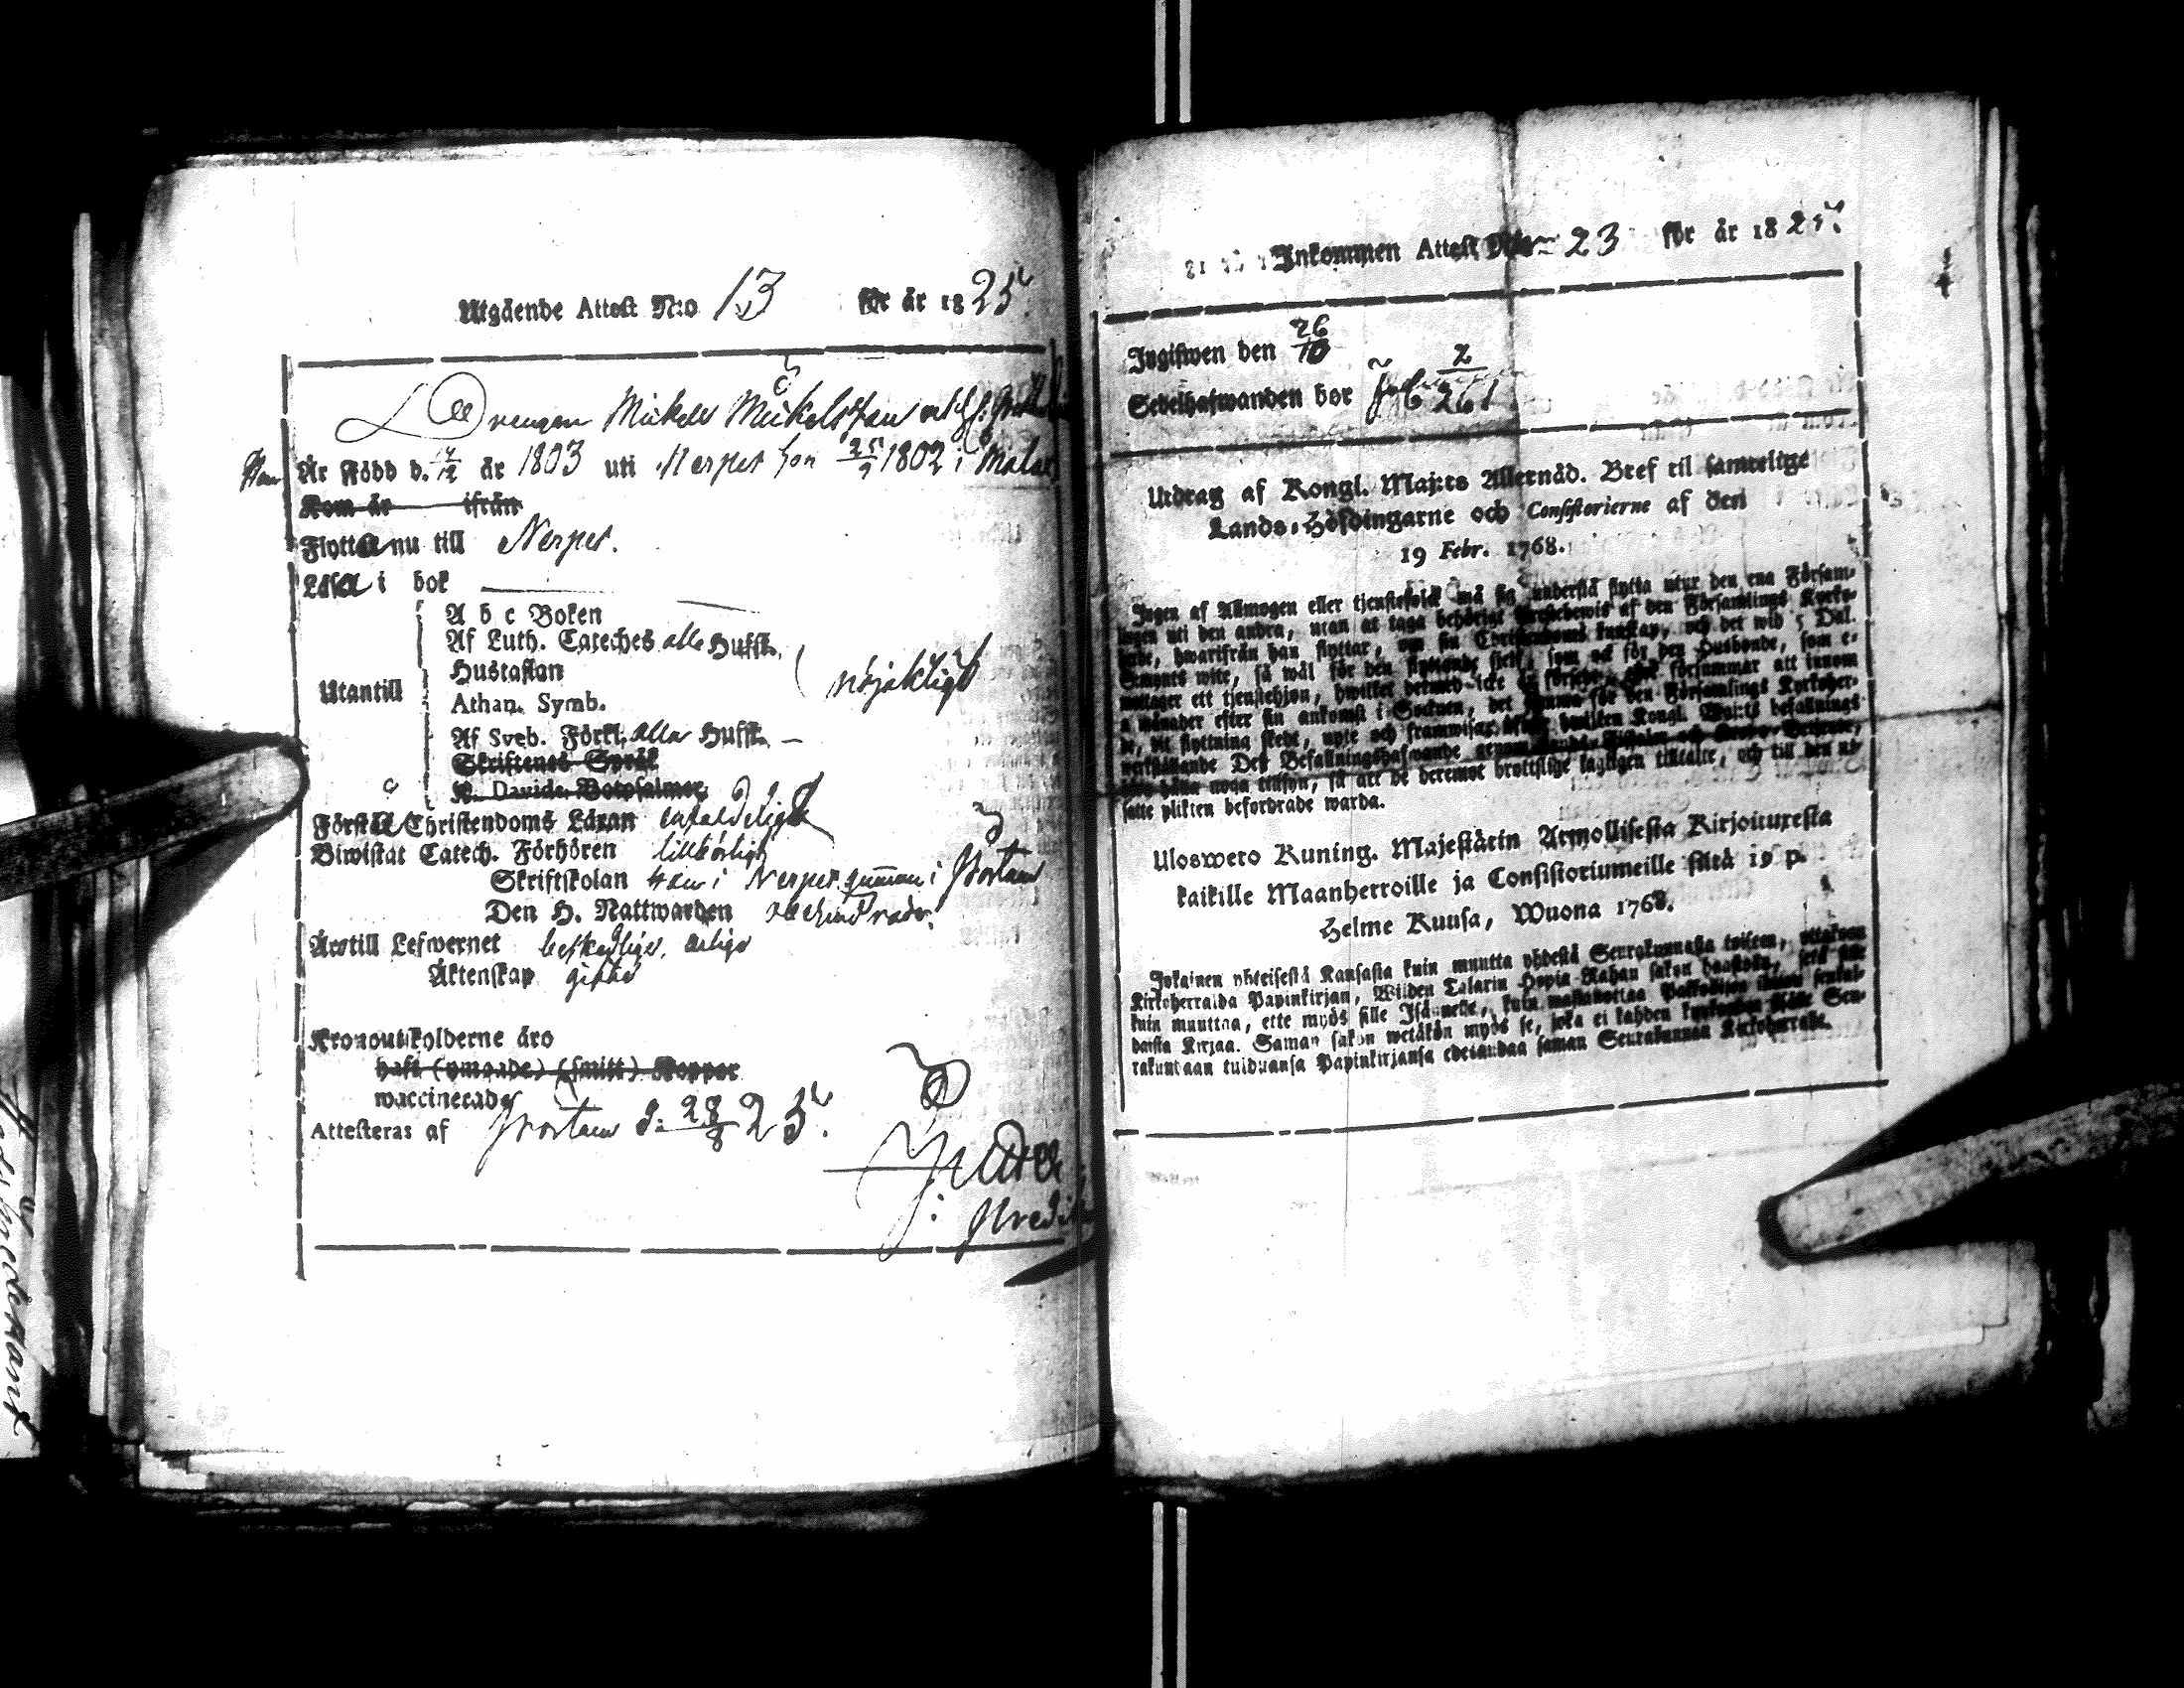 Utgående Attest N:o 13 för år 1825
Drengen Mickel Mickelsson
Han Är Född d. 12 år 1803 uti Nerpes hon 25/9 1802 i Malax
Kom år ifrån
Flytta nu till Nerpes.
Läsa i bok
A b c Boken
Af Luth. Cateches alla Hufst.
Hustaflan
Utantill
nöjaktligt
Athan. Symb.
Af Sveb. Förkl. alla Hufst.
Skriftenes Språk
K. Davids Botpsalmer
Förstå Christendoms Läran enfaldeligt
Biwistat Catech. Förhören
Skriftskolan han i Nerpes gumman i Portom
Den H. Nattwarden obehindrade.
Äro till Lefwernet beskedlige, ärlige
Äktenskap gifte
Kronoutskylderne äro
haft (ympade) (smitt) Koppor
waccinerade
Attesteras af Portom d. 28/8 25.
Inkommen Attest N:o 23 för år 1825.
Ingifwen den 26/10
Sedelhafwanden bor 261
Utdrag af Kongl. Maj:ts Allernåd. Bref til samtelige
Lands-Höfdingarne och Consistorierne af den
19 Febr. 1768.
Ingen af Allmogen eller tjenstefolk må sig understå flytta utur den ena Försam-
lingen uti den andra, utan at taga behörigt Prestebewis af den Församlings Kyrko-
herde, hwarifrån han flyttar, om sin Christendoms kunskap, och det wid 5 Dal.
Smmts wite, så wäl för den flyttande sielf, som ock för den Husbonde, som e-
mottager ett tjenstehjon, hwilket dermed icke är försedt, försummar att innom
2 månader efter sin ankomst i Socknen, det samma för den Församlings Kyrkoher-
de, dit flyttning skedt, upte och framwisar. hwilken Kongl. Maj:ts befallnings
werkställande Dess Befallningshafwande genom
hafwa noga tillsyn, så att de deremot brottslige lagligen tilltalte, och till den ut-
satte plikten befordrade warda.
Uloswero Kuning. Majestätin Armollisesta Kirjoituxesta
kaikille Maanherroille ja Consistoriumeille siitä 19 p.
Helme Kuusa, Wuona 1768.
Jokainen yhteisestä Kansasta kuin muutta yhdestä Seurakunnasta toiseen, ottakoon
Kirkoherralda Papinkirjan, Wiiden Talarin Hopia Rahan sakon haastolla, sekä sille
kuin muuttaa, ette myös sille Isännelle, kuin wastanottaa Palkollisen ilman senkal-
daista Kirjaa. Saman sakon wetäkön myös se, joka ei kahden kuukauden sisälle Seu-
rakundaan tulduansa Papinkirjansa edesandaa saman Seurakunnan Kirkoherralle.